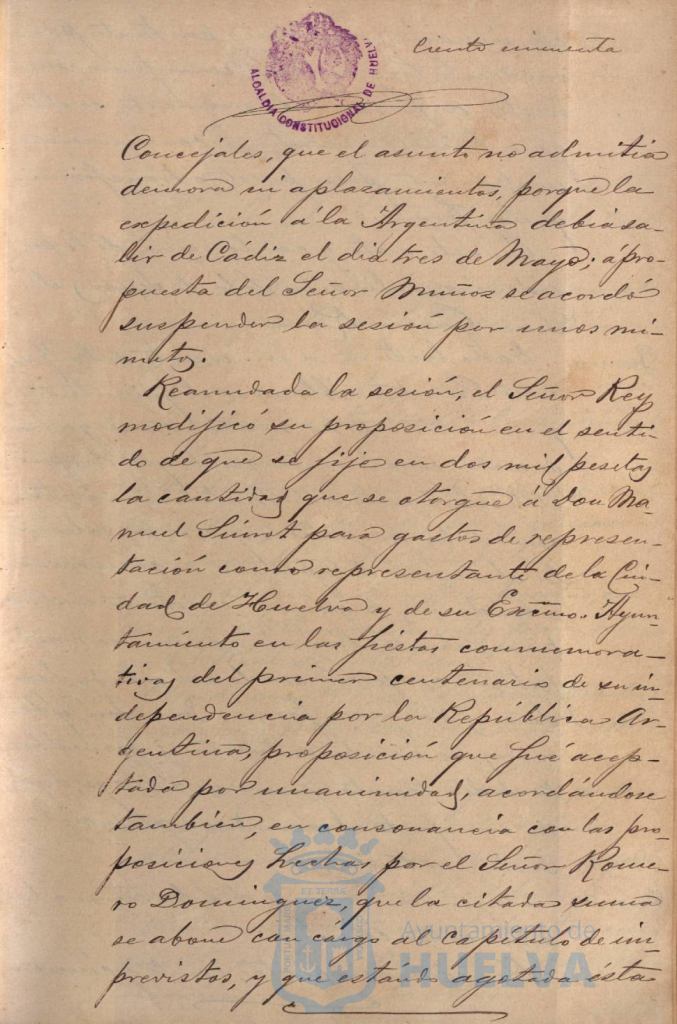 Ciento cincuenta
ALCALDIA CONSTITUCIONAL DE HUELVA
Concejales, que el asunto no admitia
demora ni aplazamientos, porque la
expedición á la Argentina debia sa-
lir de Cádiz el dia tres de Mayo; á pro-
puesta del Señor Muñoz se acordó
suspender la sesión por unos mi-
nutos.
Reanudada la sesión, el Señor Rey
modificó su proposición en el senti-
do de que se fije en dos mil pesetas
la cantidad que se otorgue á Don Ma-
nuel Siurot para gastos de represen-
tación como representante de la Ciu-
dad de Huelva y de su Excmo. Ayun-
tamiento en las fiestas conmemora-
tivas del primer centenario de su in-
dependencia por la República Ar-
gentina, proposición que fué acep-
tada por unanimidad, acordándose
tambien, en consonancia con las pro-
posiciones hechas por el Señor Rome-
ro Dominguez, que la citada suma
se abone con cargo al Capitulo de im-
previstos, y que estando agotada ésta
Ayuntamiento de
HUELVA